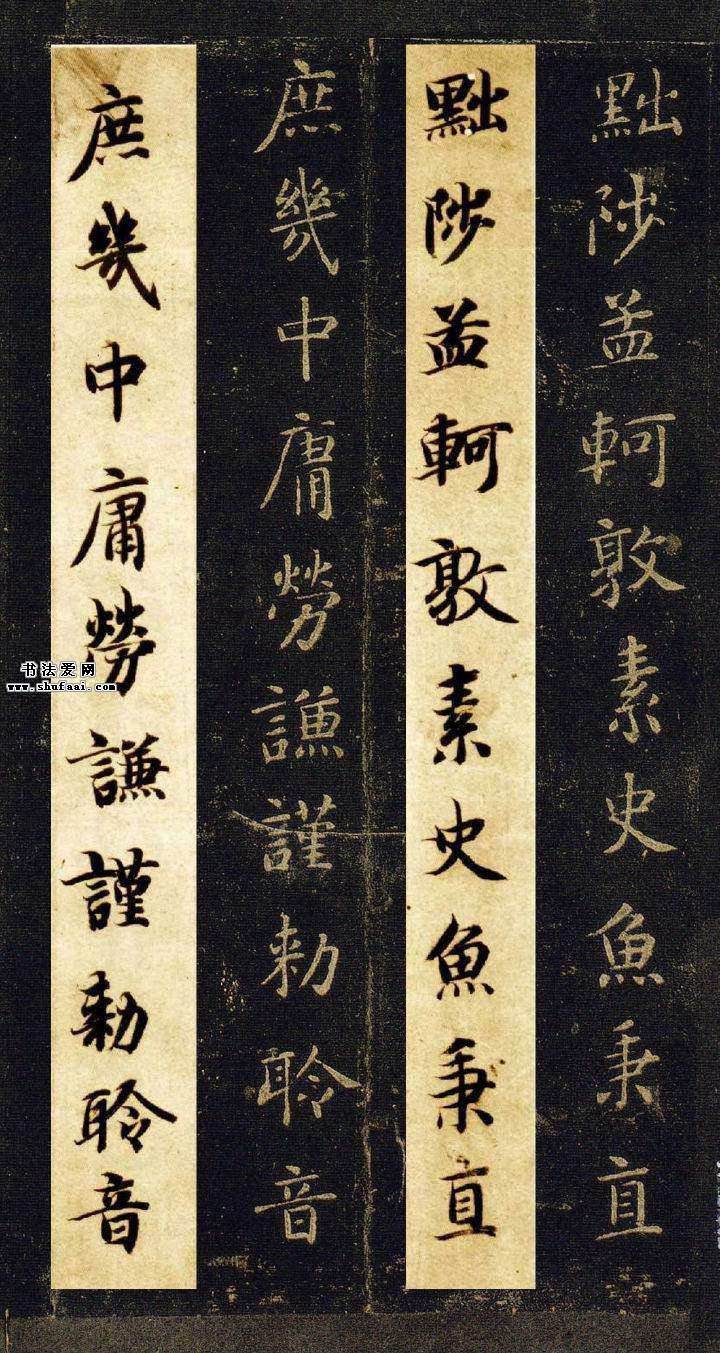 黜陟孟軻敦素史魚秉直
黜陟孟軻敦素史魚秉直
庶幾中庸勞謙謹勅聆音
庶幾中庸勞謙謹勅聆音
书法爱网
www.shufaai.com